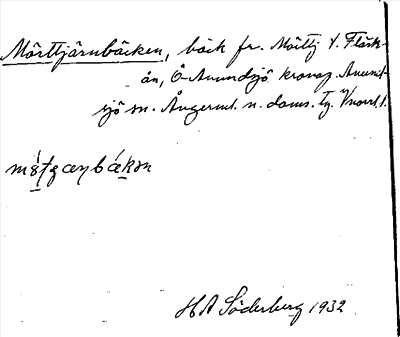 Mörttjärnbäcken, bäck fr. Mörttj t. Flärk-
ån, Ö Anundsjö kronop. Anund-
sjö sn. Ångerml. n. doms. tg. Vnorrl. l.
H A Söderberg 1932